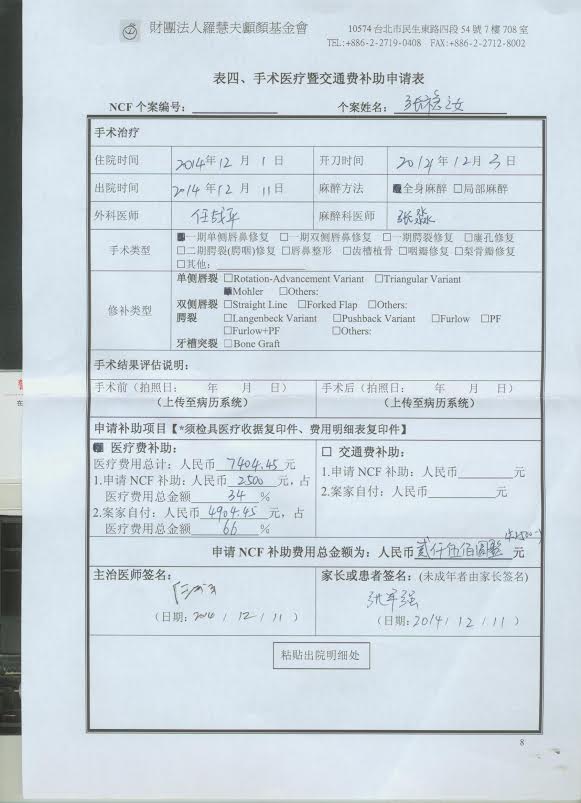 財團法人羅慧夫顱顏基金會
10574 台北市民生東路四段 54 號 7 樓 708 室
TEL:+886-2-2719-0408 FAX:+886-2-2712-8002
表四、手术医疗暨交通费补助申请表
NCF 个案编号: 个案姓名: 张
手术治疗
住院时间 2014年 12 月 1 日 开刀时间 2014年 12月 3 日
出院时间 2014 年 12 月 11 日 麻醉方法 ■全身麻醉 □局部麻醉
外科医师 任战平 麻醉科医师 张淼
手术类型 ■一期单侧唇鼻修复 □一期双侧唇鼻修复 □一期腭裂修复 □廔孔修复
□二期腭裂(腭咽)修复 □唇鼻整形 □齿槽植骨 □咽瓣修复 □梨骨瓣修复
□其他:
修补类型 单侧唇裂 □Rotation-Advancement Variant □Triangular Variant
■Mohler □Others:
双侧唇裂 □Straight Line □Forked Flap □Others:
腭裂 □Langenbeck Variant □Pushback Variant □Furlow □PF
□Furlow+PF □Others:
牙槽突裂 □Bone Graft
手术结果评估说明:
手术前（拍照日: 年 月 日） 手术后（拍照日: 年 月 日）
（上传至病历系统） （上传至病历系统）
申请补助项目【*须检具医疗收据复印件、费用明细表复印件】
■ 医疗费补助: □ 交通费补助:
医疗费用总计: 人民币 7404.45 元
1.申请 NCF 补助: 人民币 2500 元，占 1.申请 NCF 补助: 人民币 元
医疗费用总金额 34 % 2.案家自付: 人民币 元
2.案家自付: 人民币 4904.45 元，占
医疗费用总金额 66 %
申请 NCF 补助费用总金额为: 人民币 贰仟伍佰圆整 元
主治医师签名: 家长或患者签名: (未成年者由家长签名)
张军强
（日期: 2014 / 12 / 11 ） （日期: 2014 / 12 / 11 ）
粘贴出院明细处
8